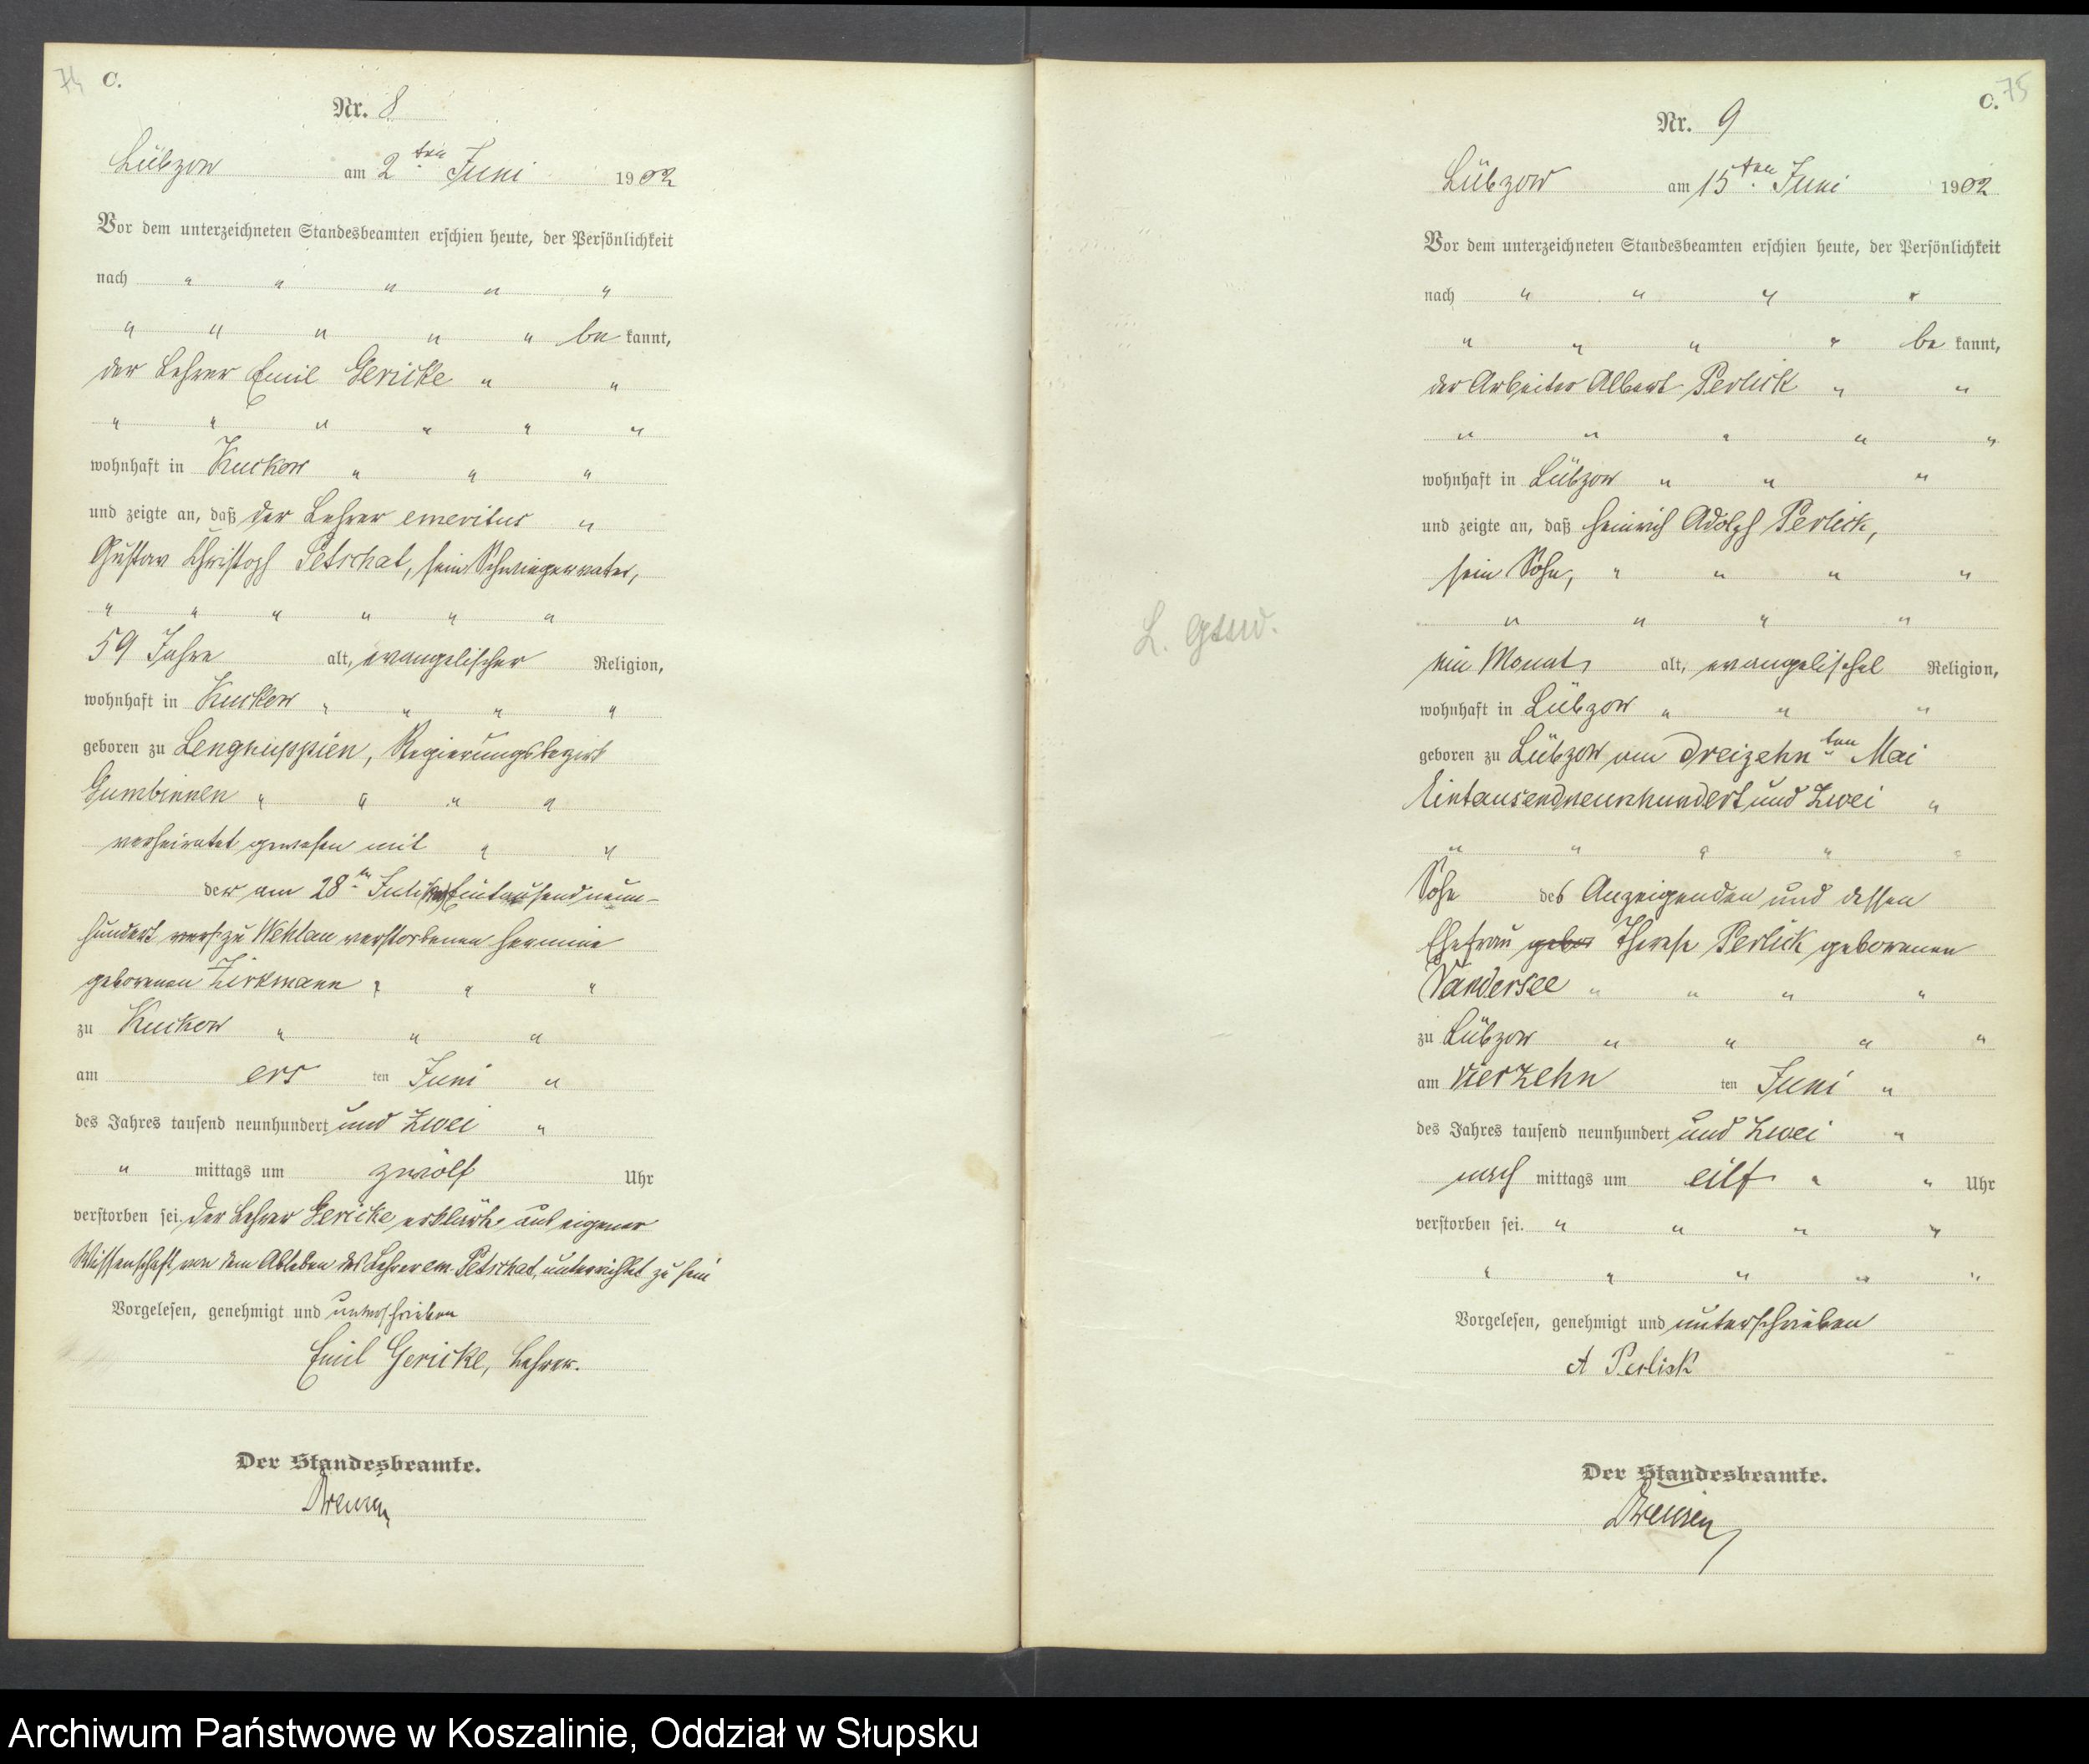 74 C.
Nr. 8
Lübzow am 2ten Juni 1902
Vor dem unterzeichneten Standesbeamten erschien heute, der Persönlichkeit
nach " " " " "
" " " " " be kannt,
der Lehrer Emil Gericke " "
" " " " " "
wohnhaft in Kuckow " " "
und zeigte an, daß der Lehrer emeritus "
Gustav Christoph Petschat, sein Schwiegervater,
" " " " " "
59 Jahre alt, evangelischer Religion,
wohnhaft in Kuckow " " " "
geboren zu Lengkuppien, Regierungsbezirk
Gumbinnen " " " "
verheirathet gewesen mit " "
der am 28ten Juli Eintausendneun-
hundert zu Wehlau verstorbenen Hermine
geborenen Zirkmann " " "
zu Kuckow " " "
am ers ten Juni "
des Jahres tausend neunhundert und zwei "
" mittags um zwölf Uhr
verstorben sei. Der Lehrer Gericke erklärte aus eigener
Wissenschaft von dem Ableben des Lehrer em. Petschat, unterrichtet zu sein
Vorgelesen, genehmigt und unterschrieben
Emil Gericke, Lehrer.
Der Standesbeamte.
C. 75
Nr. 9
Lübzow am 15ten Juni 1902
Vor dem unterzeichneten Standesbeamten erschien heute, der Persönlichkeit
nach " " " "
" " " " be kannt,
der Arbeiter Albert Perlick " "
" " " " "
wohnhaft in Lübzow " " "
und zeigte an, daß Heinrich Adolph Perlick,
sein Sohn, " " " "
" " " "
ein Monat, alt, evangelischer Religion,
wohnhaft in Lübzow " " "
geboren zu Lübzow am dreizehnten Mai
Eintausendneunhundert und zwei "
" " " " "
Sohn des Anzeigenden und dessen
Ehefrau gebor Therese Perlick geborenen
Vandersee " " " "
zu Lübzow " " " "
am vierzehn ten Juni "
des Jahres tausend neunhundert und zwei "
nach mittags um eilf " " Uhr
verstorben sei. " " " "
" " " " "
Vorgelesen, genehmigt und unterschrieben
A Perlick
Der Standesbeamte.
Archiwum Państwowe w Koszalinie, Oddział w Słupsku